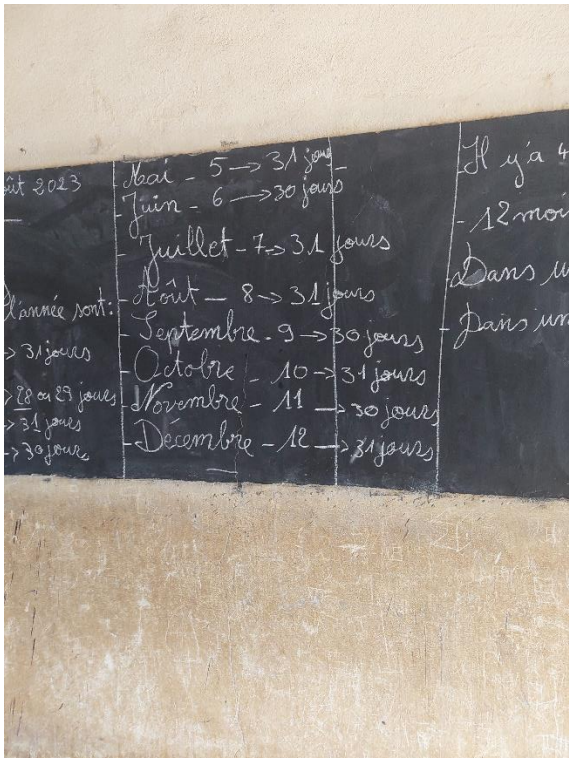 août 2023
l'année sont:
-> 31 jours
-> 28 ou 29 jours
-> 31 jours
-> 30 jours
- Mai - 5 -> 31 jours
- Juin - 6 -> 30 jours
- Juillet - 7 -> 31 jours
- Août - 8 -> 31 jours
- Septembre - 9 -> 30 jours
- Octobre - 10 -> 31 jours
- Novembre - 11 -> 30 jours
- Décembre - 12 -> 31 jours
Il y'a 4
- 12 moi
Dans u
- Dans un